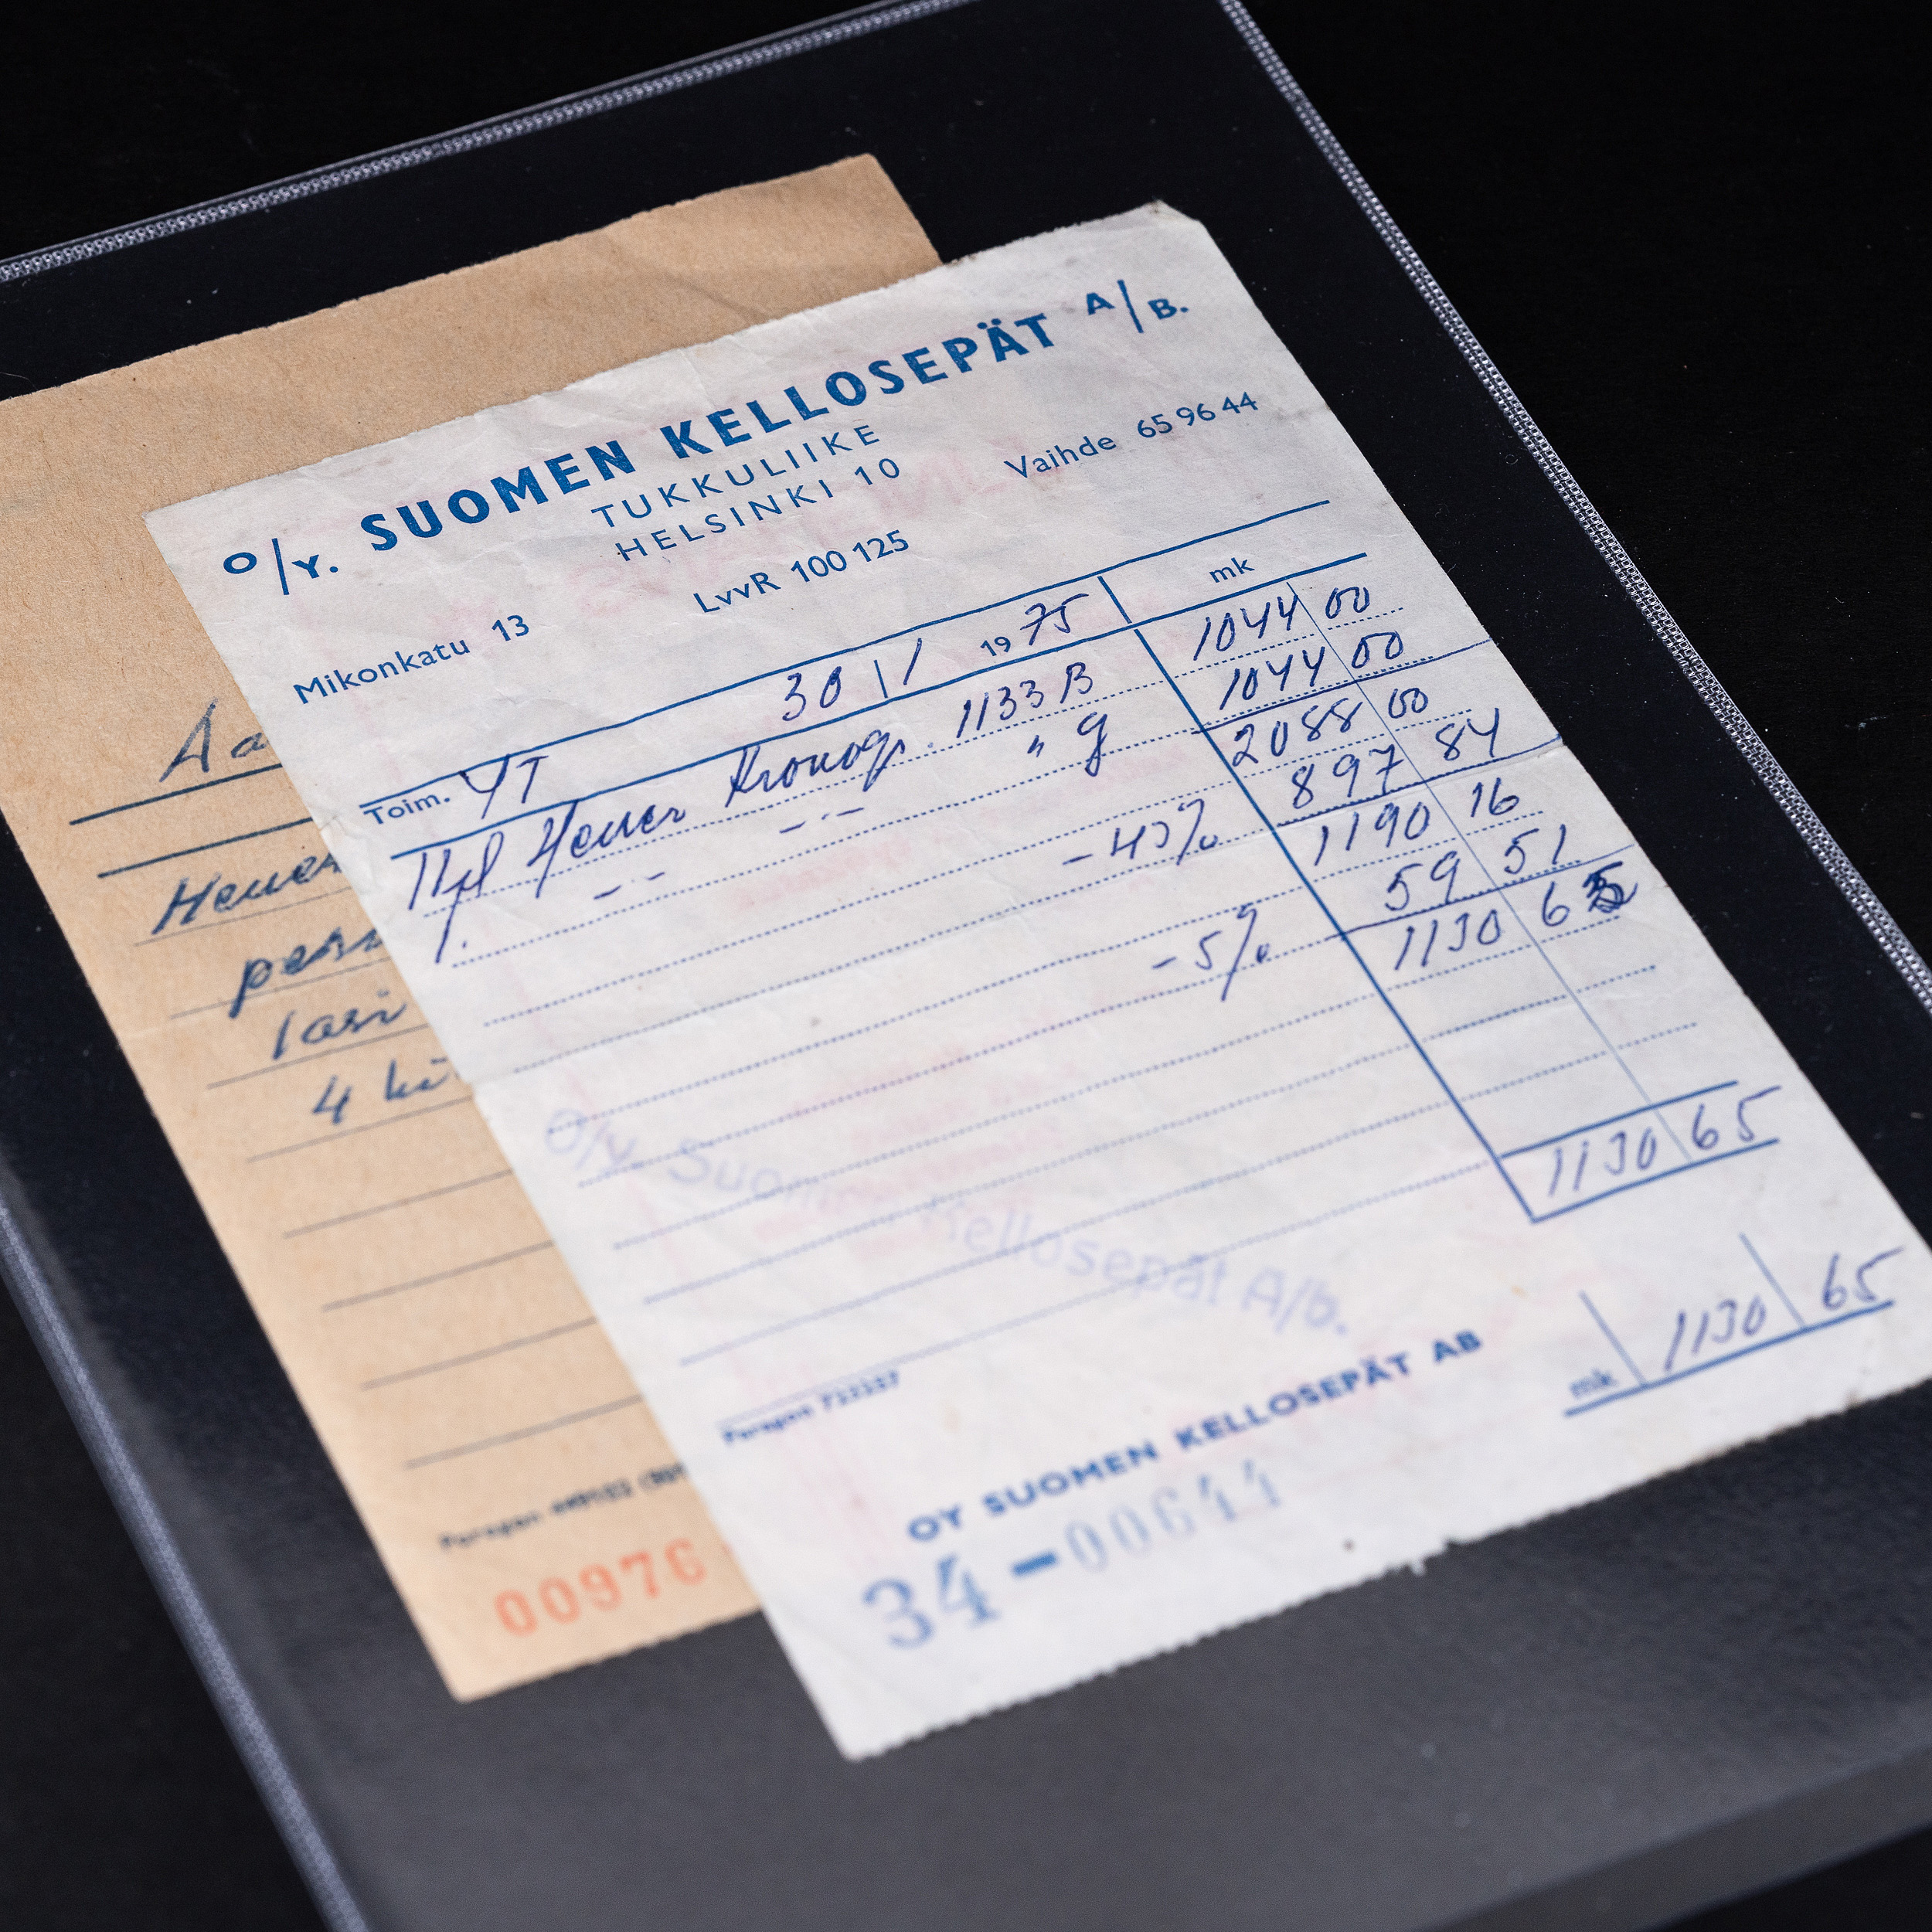 O/Y. SUOMEN KELLOSEPÄT A/B.
TUKKULIIKE
HELSINKI 10
Mikonkatu 13 LvvR 100 125 Vaihde 65 96 44
mk
Toim. YT 30/1 1975
1 kpl Heuer Kronogr. 1133 B 1044 00
1 " -"- -"- " G 1044 00
2088 00
-43% 897 84
1190 16
-5% 59 51
1130 65
1130 65
O/y. Suomen
Kellosepät A/b.
mk 1130 65
OY SUOMEN KELLOSEPÄT AB
34-00644
Aa
Heuer
lasi
4 kü
Paragon
00976